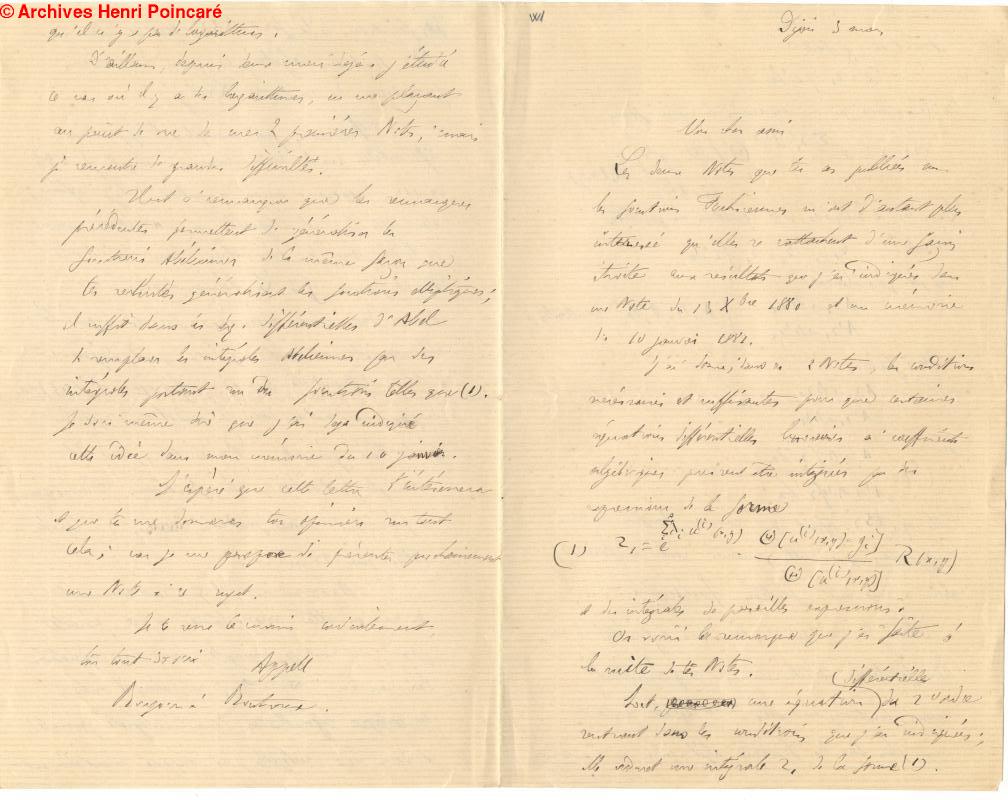 © Archives Henri Poincaré
qu'il n'y a pas de logarithmes.
D'ailleurs, depuis deux mois déjà j'étudie
ce cas où il y a des logarithmes, en me plaçant
au point de vue de mes 2 premières Notes, mais
je rencontre de grandes difficultés.
Il est à remarquer que les remarques
précédentes permettent de généraliser les
fonctions Abéliennes de la même façon que
tes résultats généralisent les fonctions elliptiques;
il suffit dans les éq. différentielles d'Abel
de remplacer les intégrales Abéliennes par des
intégrales portant sur des fonctions telles que (1).
Je dois même dire que j'ai déjà indiqué
cette idée dans mon mémoire du 10 janvier.
J'espère que cette lettre t'intéressera
et que tu me donneras ton opinion sur tout
cela; car je me propose de présenter prochainement
une Note à ce sujet.
Je te serre la main cordialement
ton tout dévoué
Appell
Bonjour à Boutroux.
VV
Dijon 3 mars
Mon cher ami
Les deux Notes que tu as publiées sur
les fonctions Fuchsiennes m'ont d'autant plus
intéressé qu'elles se rattachent d'une façon
étroite aux résultats que j'ai indiqués dans
une Note du 13 Xbre 1880 et un mémoire
du 10 janvier 1881.
J'ai donné, dans ces 2 Notes, les conditions
nécessaires et suffisantes pour que certaines
équations différentielles linéaires à coefficients
algébriques puissent être intégrées par des
expressions de la forme
(1) z₁ = e^{Σλᵢ u⁽ⁱ⁾(x,y)} · Θ[u⁽ⁱ⁾(x,y) − gᵢ] / Θ[u⁽ⁱ⁾(x,y)] R(x,y)
et des intégrales de pareilles expressions.
Or voici la remarque que j'ai faite à
la suite de tes Notes.
Soit, une équation différentielle du 2 ordre
rentrant dans les conditions que j'ai indiquées;
elle admet une intégrale z₁ de la forme (1).